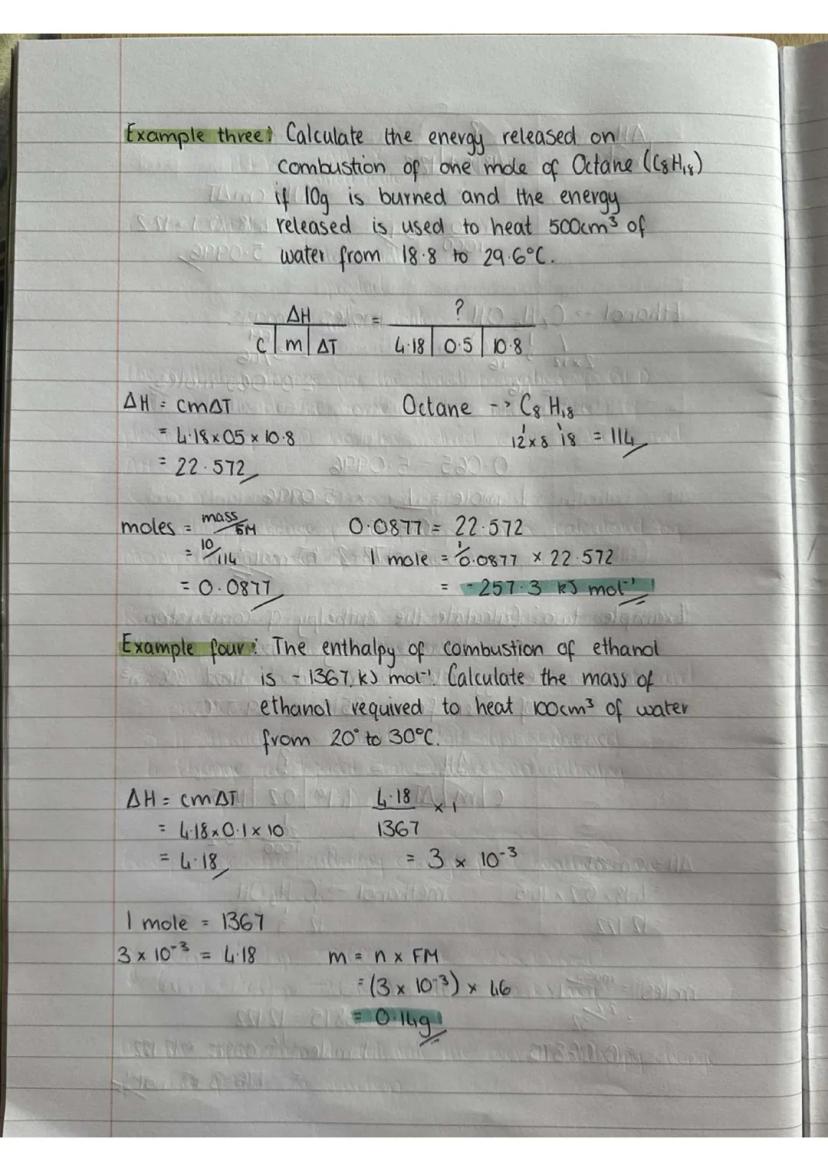 Example three: Calculate the energy released on
combustion of one mole of Octane (C₈H₁₈)
if 10g is burned and the energy
released is used to heat 500cm³ of
water from 18.8 to 29.6°C.
ΔH = ?
c | m | ΔT 4.18 | 0.5 | 10.8
ΔH = cmΔT Octane -> C₈ H₁₈
= 4.18 x 05 x 10.8 12x8 18 = 114
= 22.572
moles = mass/FM 0.0877 = 22.572
= 10/114 1 mole = 1/0.0877 x 22.572
= 0.0877 = -257.3 kJ mol⁻¹
Example four: The enthalpy of combustion of ethanol
is -1367 kJ mol⁻¹. Calculate the mass of
ethanol required to heat 100cm³ of water
from 20° to 30°C.
ΔH = cmΔT 4.18 x 1
= 4.18 x 0.1 x 10 1367
= 4.18 = 3 x 10⁻³
1 mole = 1367
3 x 10⁻³ = 4.18 m = n x FM
= (3 x 10⁻³) x 46
= 0.14g